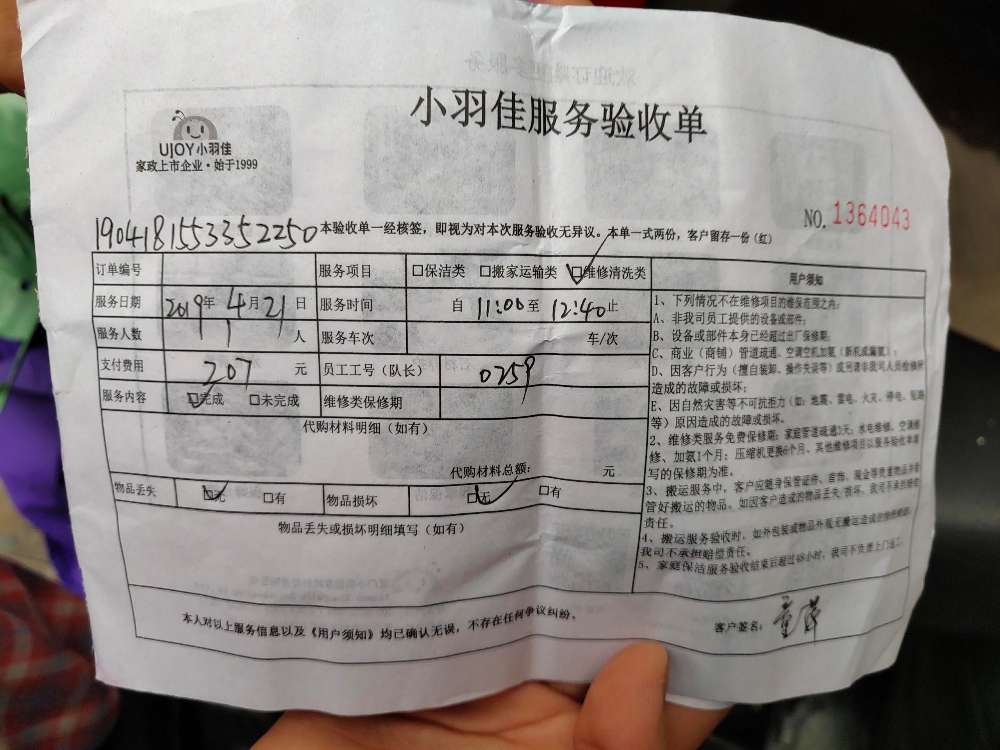 小羽佳服务验收单
UJOY小羽佳
家政上市企业·始于1999
NO. 1364043
1904181553352250 本验收单一经核签，即视为对本次服务验收无异议。本单一式两份，客户留存一份(红)
订单编号 服务项目 □保洁类 □搬家运输类 □维修清洗类
服务日期 2019年4月21日 服务时间 自 11:00 至 12:40 止
服务人数 1 人 服务车次 车/次
支付费用 207 元 员工工号（队长） 0259
服务内容 □完成 □未完成 维修类保修期
代购材料明细（如有）
代购材料总额: 元
物品丢失 □无 □有 物品损坏 □无 □有
物品丢失或损坏明细填写（如有）
用户须知
1、下列情况不在维修项目的维保范围之内:
A、非我司员工提供的设备或部件;
B、设备或部件本身已经超过出厂保修期;
C、商业（商铺）管道疏通、空调空机加氨（新机或漏氨）;
D、因客户行为（擅自装卸、操作失误等）或另请非我司人员检修所
造成的故障或损坏;
E、因自然灾害等不可抗拒力（如: 地震、雷电、火灾、停电、短路
等）原因造成的故障或损坏。
2、维修类服务免费保修期: 家庭管道疏通3天; 水电维修、空调维
修、加氨1个月; 压缩机更换6个月、其他维修项目以服务验收单填
写的保修期为准。
3、搬运服务中，客户应随身保管证件、首饰、现金等贵重物品并看
管好搬运的物品。如因客户造成的物品丢失/损坏，我司不承担赔偿
责任。
4、搬运服务验收时，如外包装或物品外观无搬运造成的
我司不承担赔偿责任。
5、家庭保洁服务验收结束后超过48小时，我司不负责上门返工。
本人对以上服务信息以及《用户须知》均已确认无误，不存在任何争议纠纷。
客户签名: